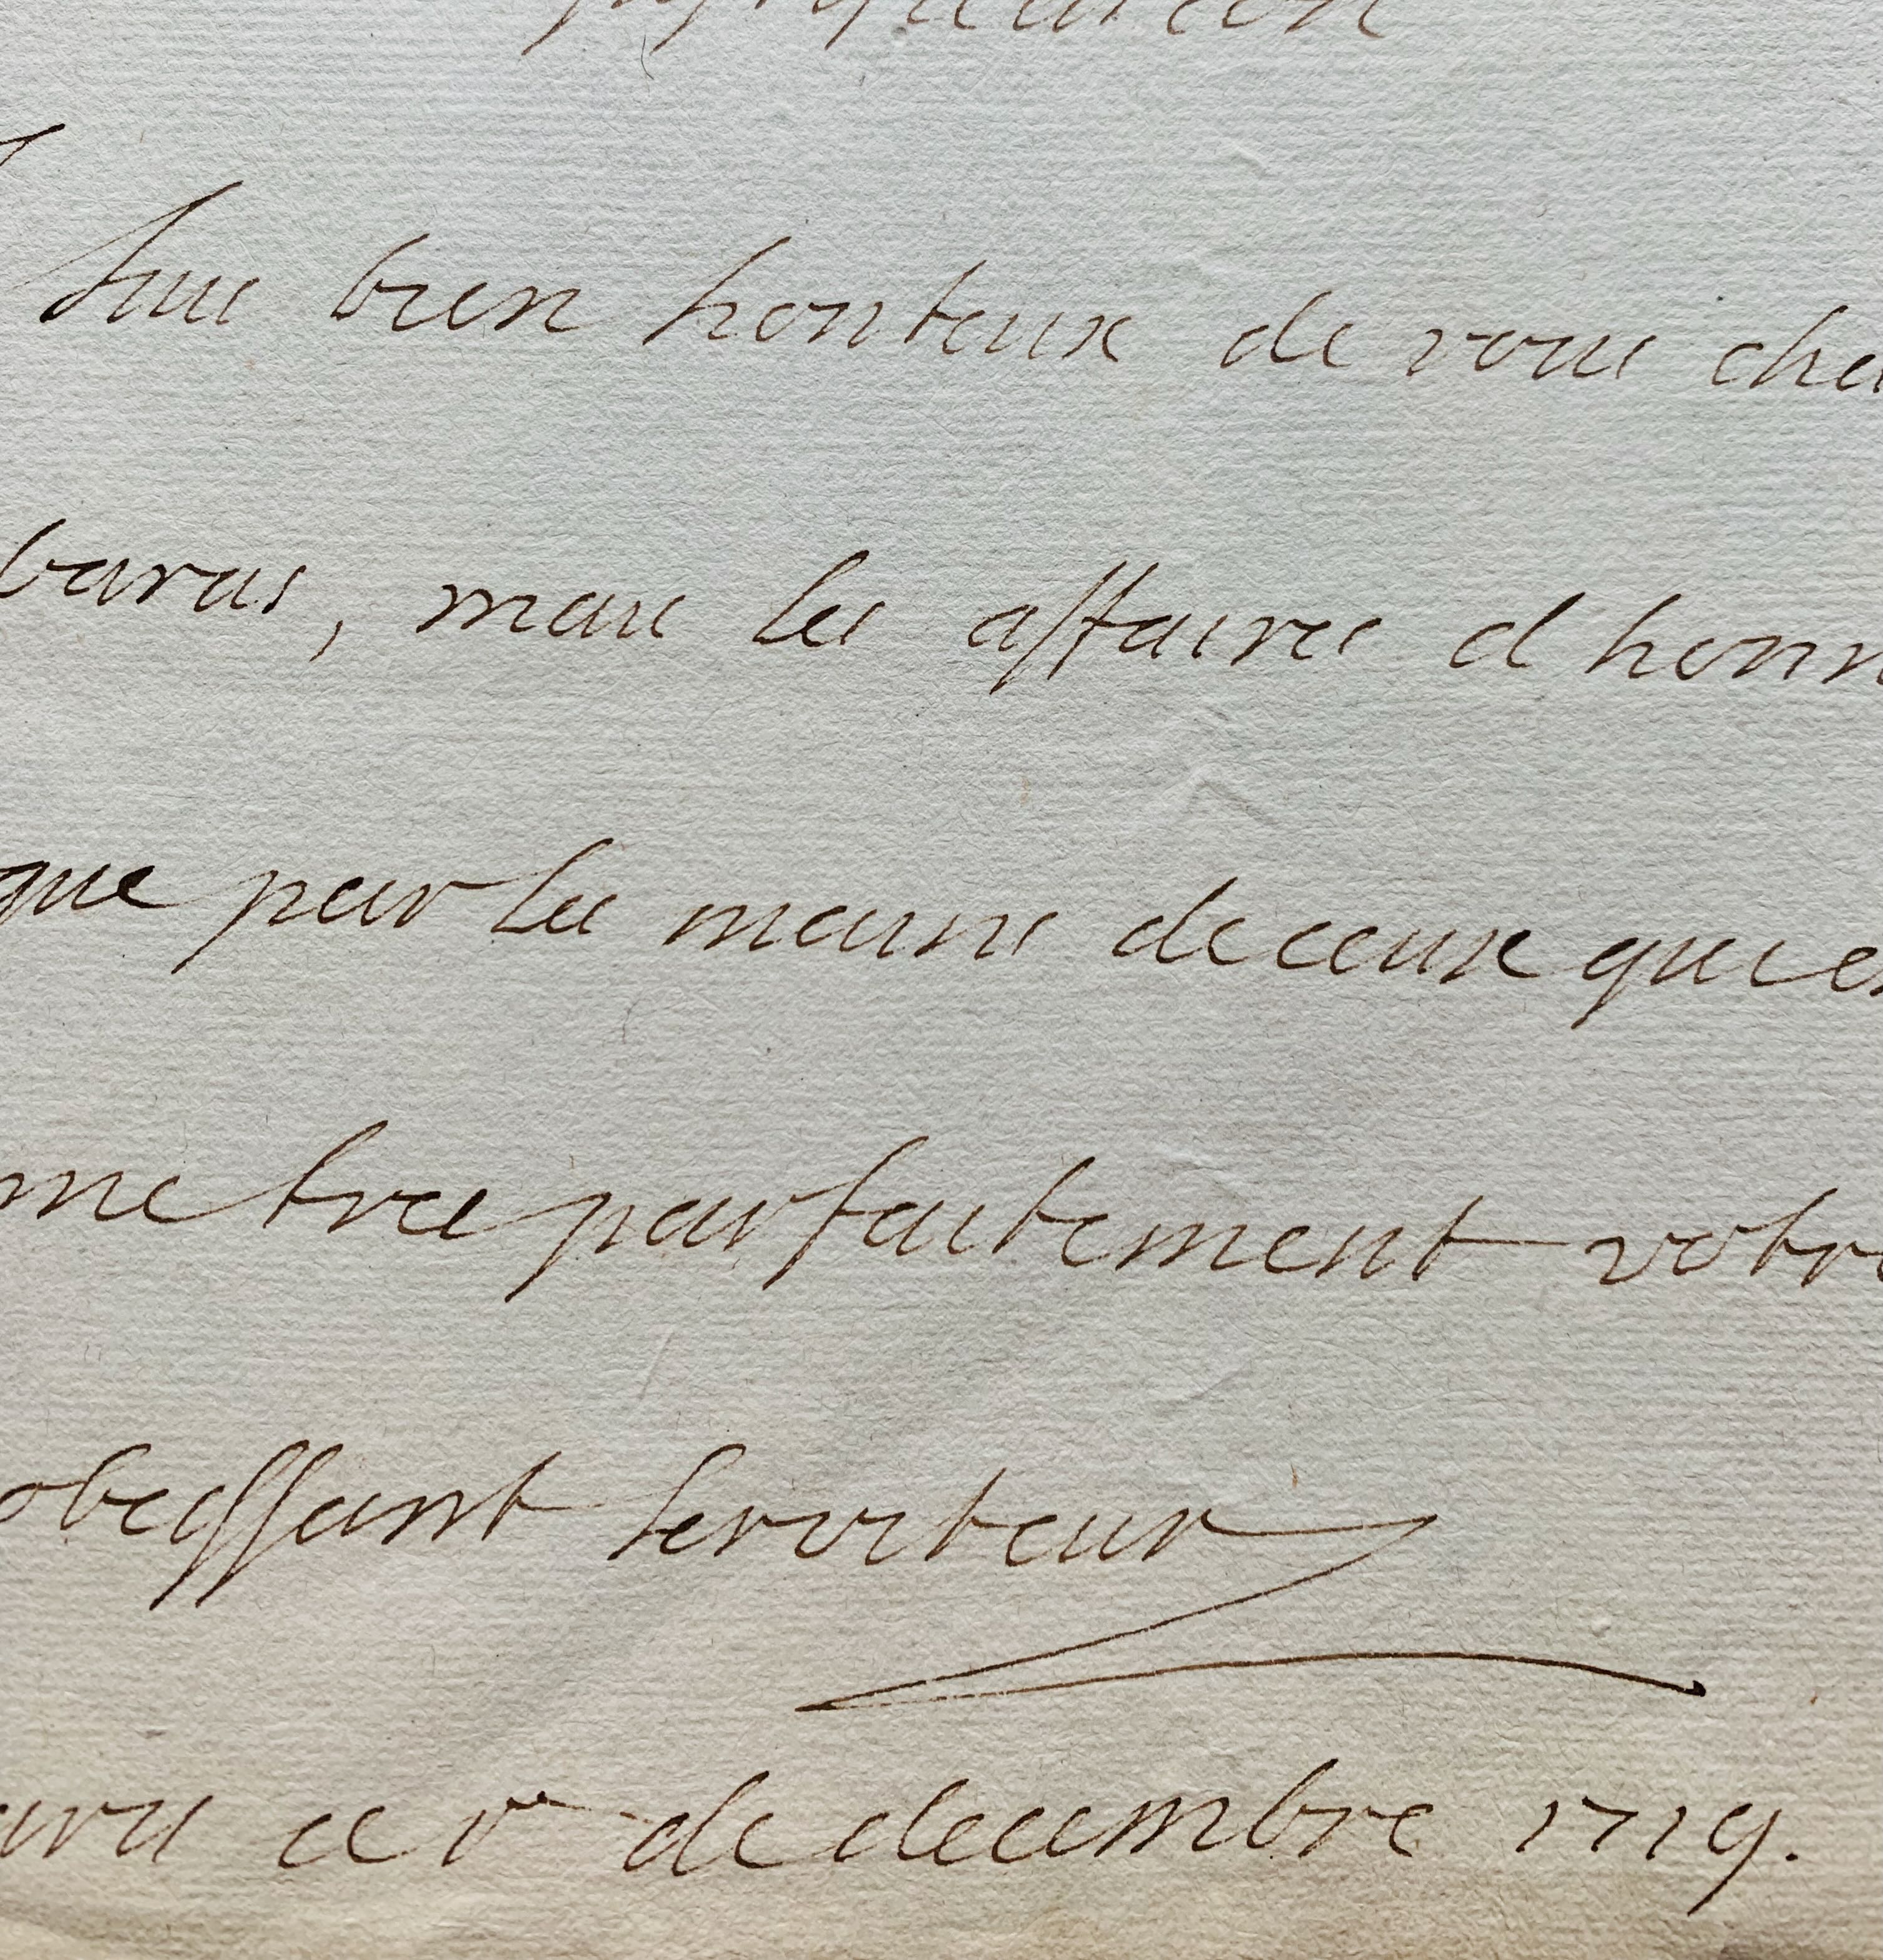 suis bien honteux de vous cha
baras, mais les affaires d honn
que par les mains de ceux qui en
me tres parfaitement votre
obeissant serviteur
aris ce 1er de decembre 1719.